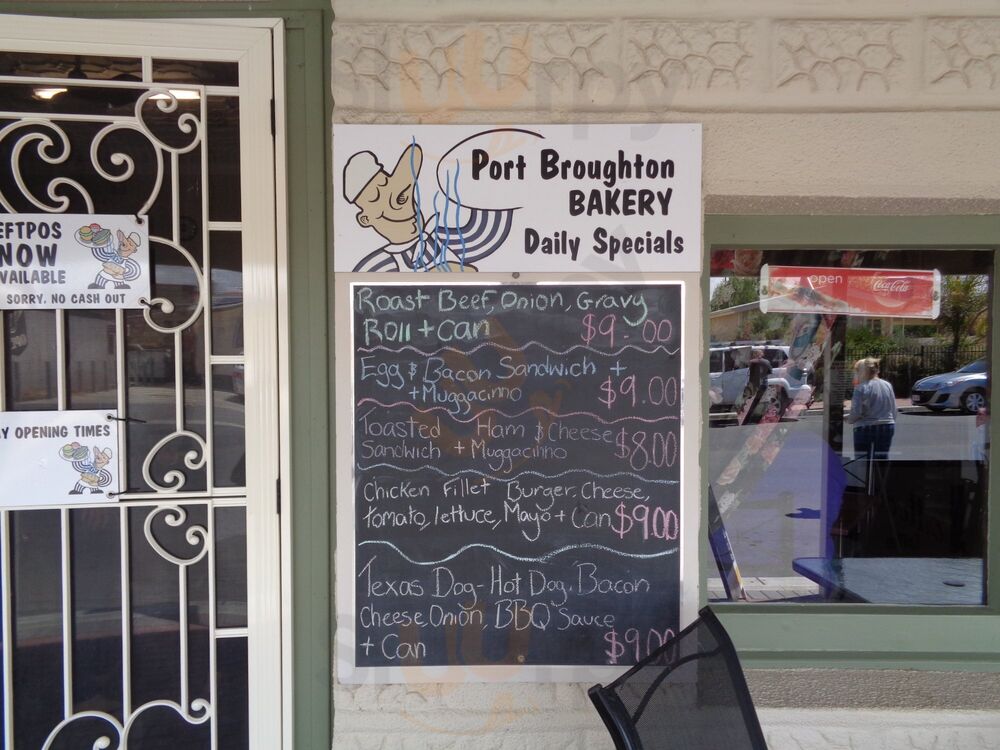 Port Broughton
BAKERY
Daily Specials
EFTPOS
NOW
AVAILABLE
SORRY, NO CASH OUT
OPENING TIMES
Roast Beef, Onion, Gravy
Roll + Can $9.00
Egg & Bacon Sandwich +
+ Muggacinno $9.00
Toasted Ham & Cheese
Sandwich + Muggacinno $8.00
Chicken Fillet Burger, Cheese,
tomato, lettuce, Mayo + Can $9.00
Texas Dog - Hot Dog, Bacon
Cheese, Onion, BBQ Sauce
+ Can $9.00
open Coca-Cola
sluurpy